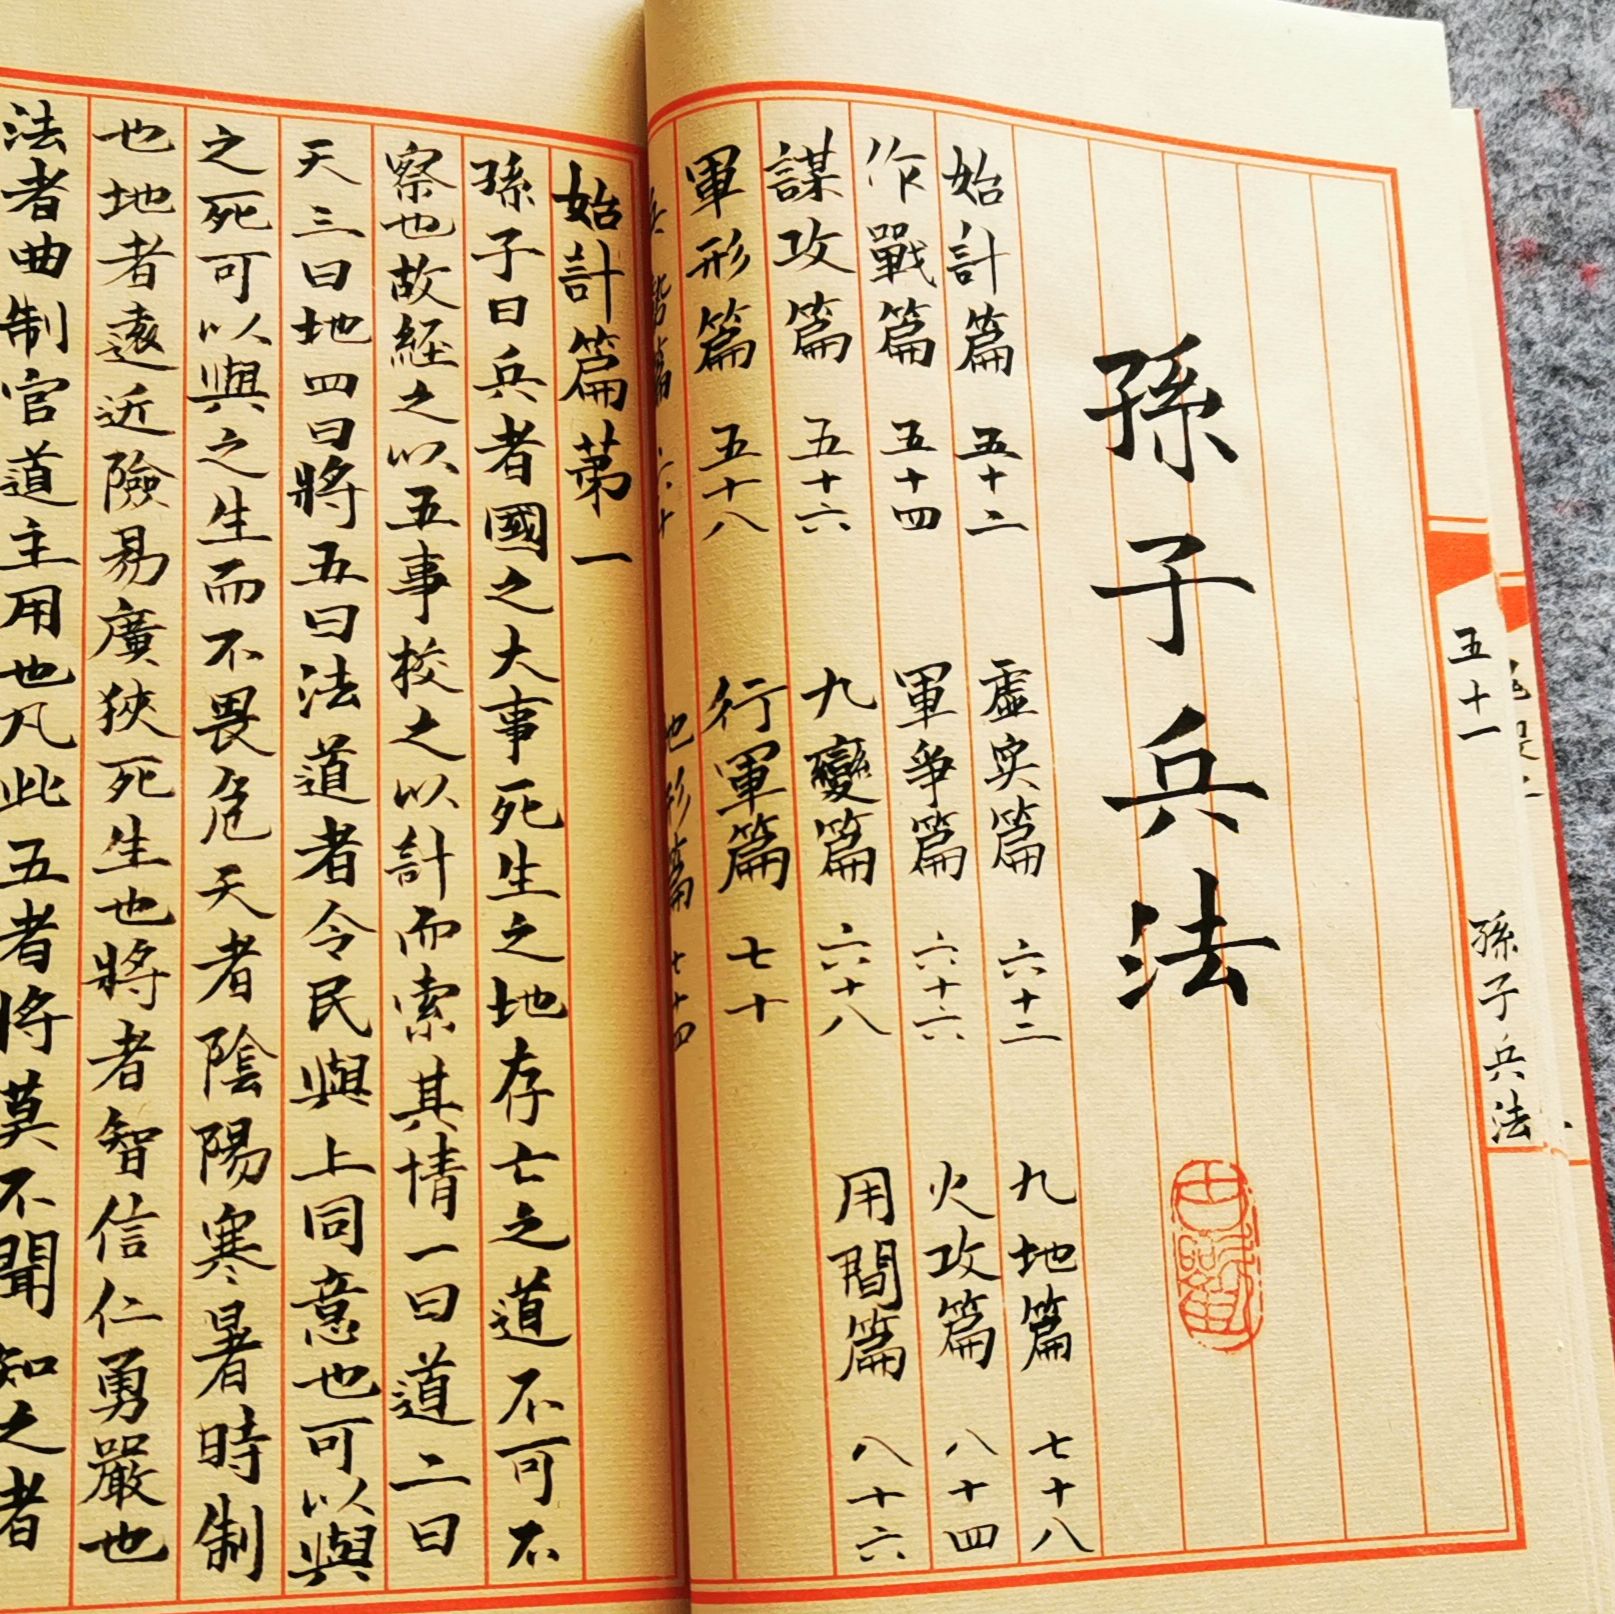 五十一
孫子兵法
孫子兵法
始計篇 五十二 虛实篇 六十二 九地篇 七十八
作戰篇 五十四 軍爭篇 六十六 火攻篇 八十四
謀攻篇 五十六 九變篇 六十八 用間篇 八十六
軍形篇 五十八 行軍篇 七十
兵勢篇 六十 地形篇 七十四
始計篇第一
孫子曰兵者國之大事死生之地存亡之道不可不
察也故經之以五事校之以計而索其情一曰道二曰
天三曰地四曰將五曰法道者令民與上同意也可以與
之死可以與之生而不畏危天者陰陽寒暑時制
也地者遠近險易廣狹死生也將者智信仁勇嚴也
法者曲制官道主用也凡此五者將莫不聞知之者